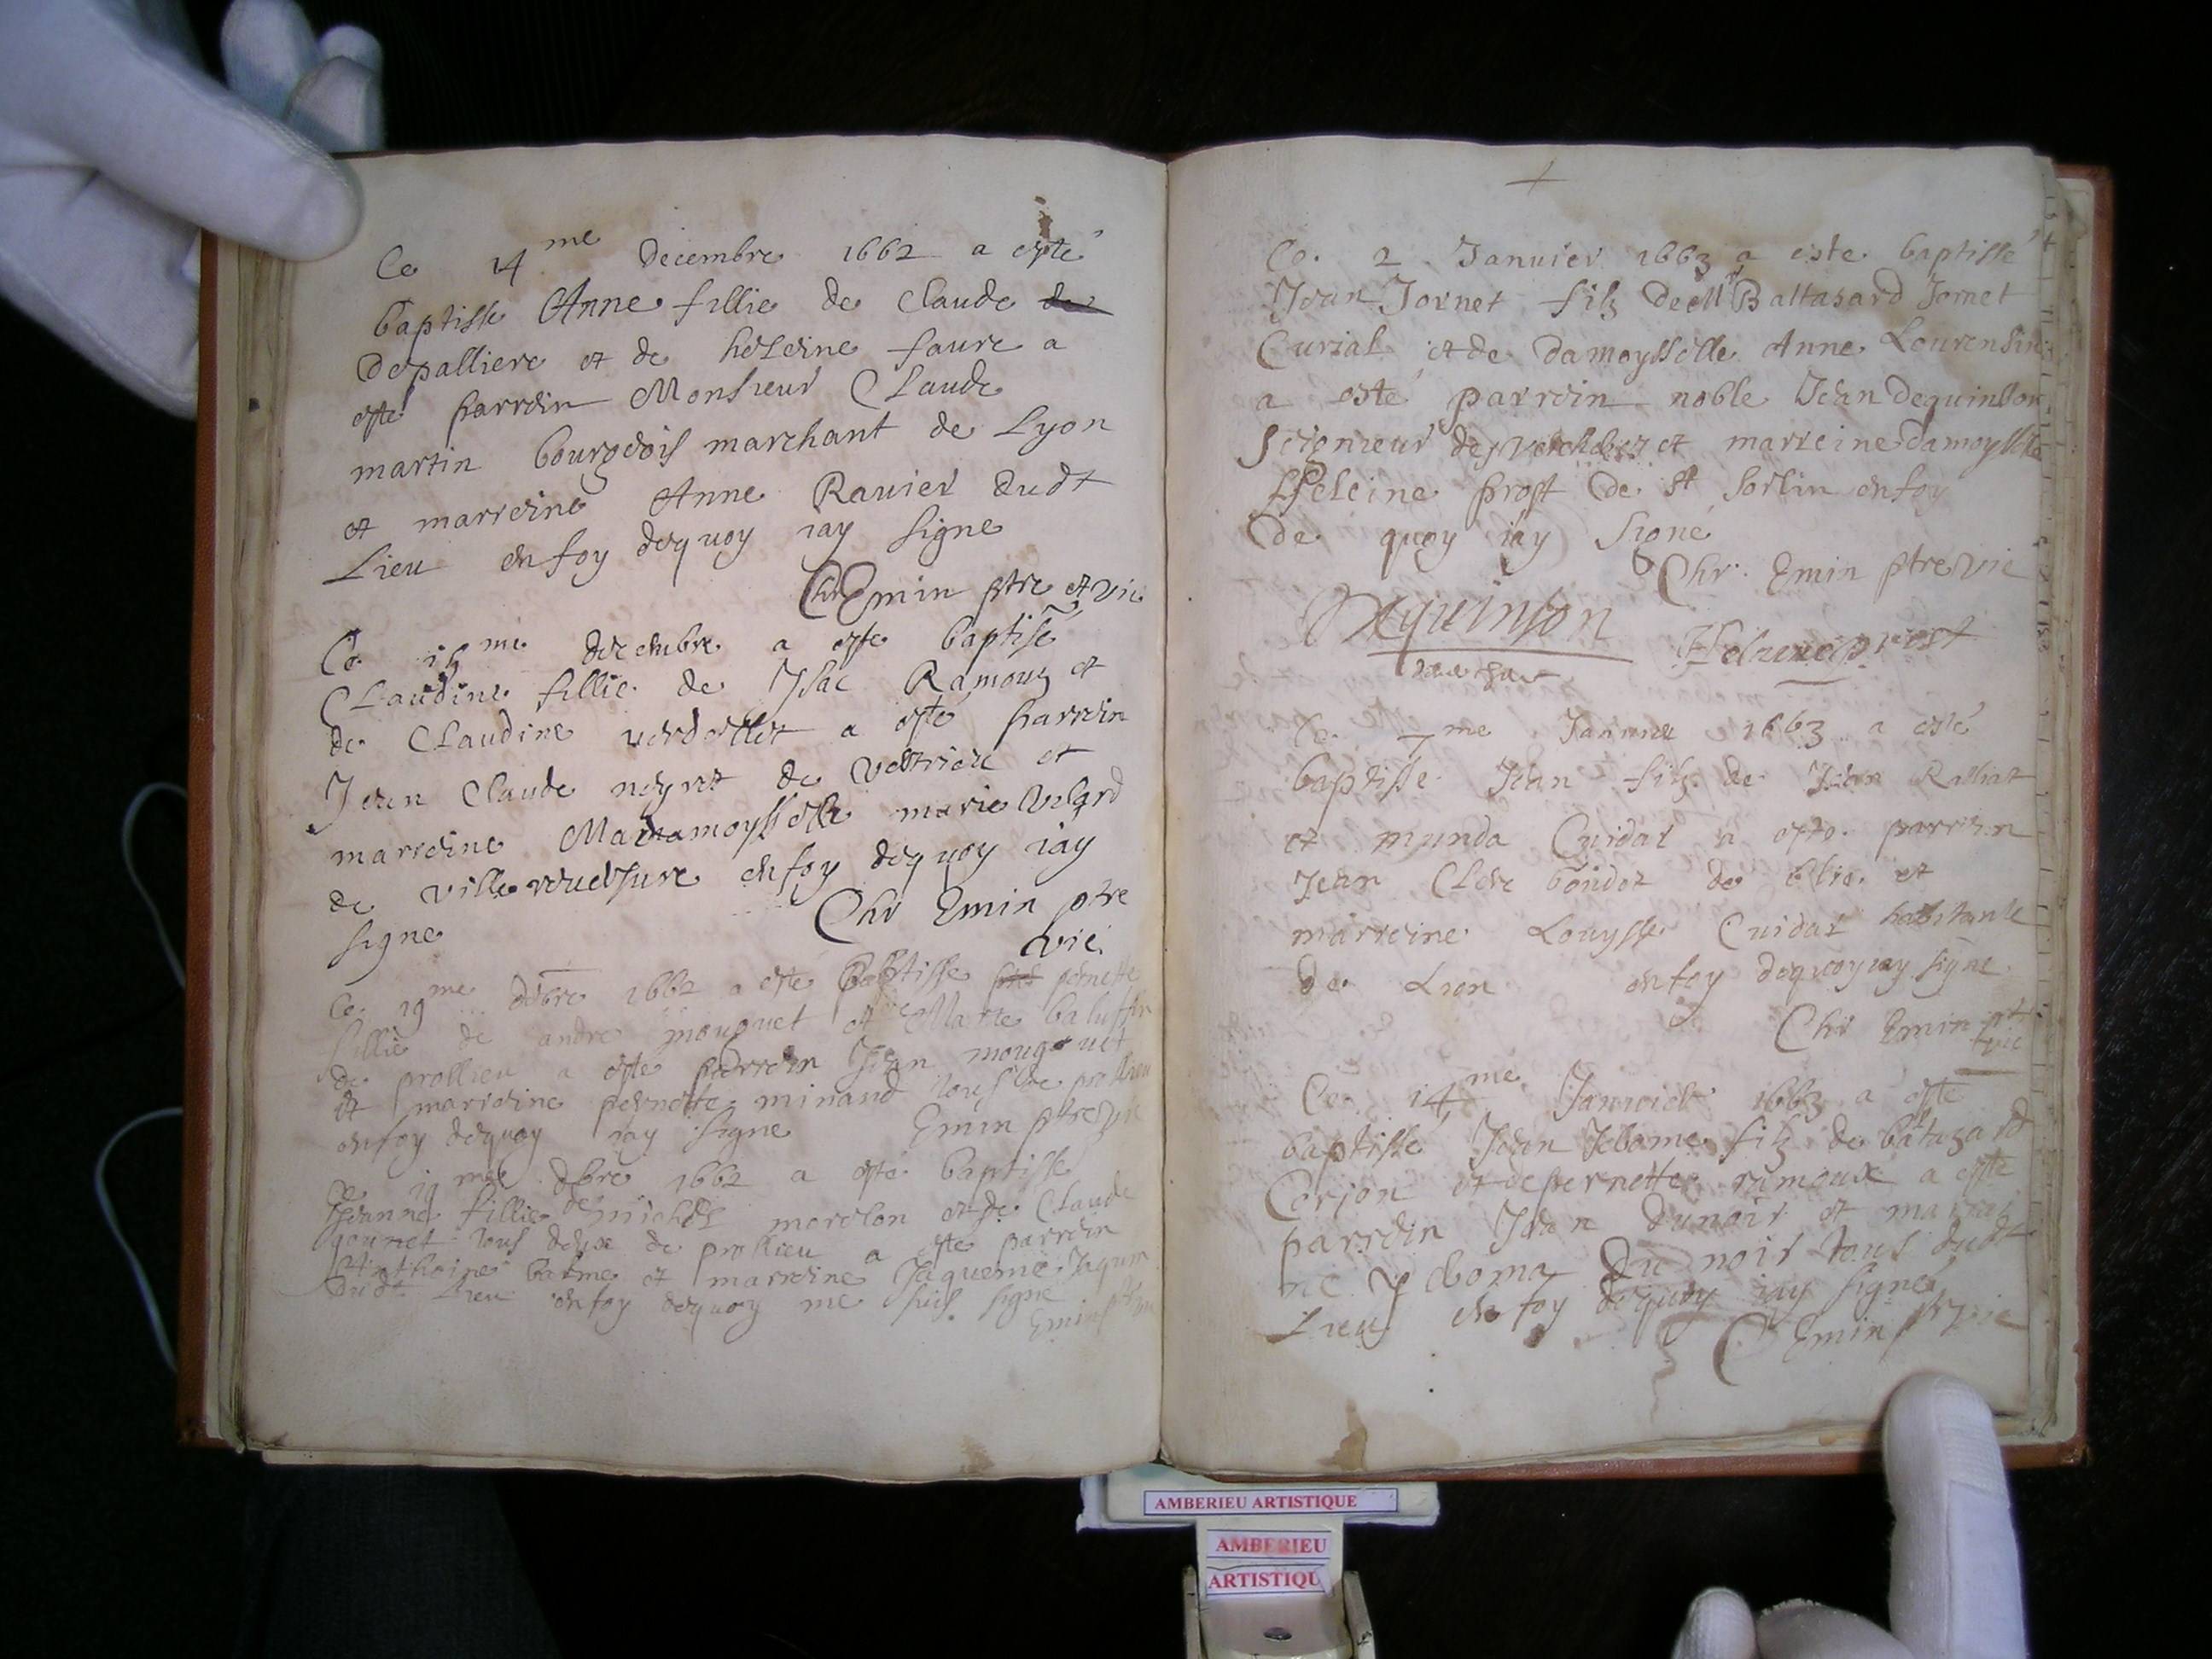 Ce 14me decembre 1662 a esté
baptisse Anne fillie de Claude
depalliere et de heleine faure a
esté parrein Monsieur Claude
martin bourgeois marchant de Lyon
et marreine Anne Ravier dudt
Lieu en foy dequoy iay signe
Chr Emin ptre et vic
Ce me decembre a este baptisé
Claudine fillie de Isac Ramouz et
de Claudine a esté parrein
Jean Claude neyret de et
marreine Madamoysselle marie
de ville reuersure en foy dequoy iay
signe Chr Emin ptre
vic
Ce 19me debre 1662 a este baptisse pernette
fillie de andre mouguet et Marie
de prollieu a este parrein Jean mouguet
et marreine pernette minand tous de prollieu
en foy dequoy iay signe Emin ptre vic
Ce 19me dbre 1662 a esté baptisse
Jeanne fillie de michel morelon et de Claude
gounet tous deux de prollieu a este parrein
Anthoine barme et marreine Jaqueme
dudt Lieu en foy dequoy me suis signe
Emin
+
Ce 2 Januier 1663 a este baptissé
Jean Jornet filz de Mr Baltazard Jornet
Curial et de damoysselle Anne Lourensin
a esté parrein noble Jean dequinson
seigneur de et marreine damoysselle
Heleine prost de st sorlin en foy
de quoy iay signé
Chr Emin ptre vic
Dequinson
Heleine prost
Ce 7me Januier 1663 a esté
baptisse Jean filz de Jean Ralliat
et munda Cuidat a este parrein
Jean boudot de et
marreine Louysse Cuidat habitante
de Lion en foy dequoy iay signe
Chr Emin pt
vic
Ce 14me Januier 1663 a este
baptissé Jean filz de batazard
Corjon et de pernette ramoux a este
parrein Jean dunoir et marrei
ne du noir tous dudt
Lieu en foy dequoy iay signé
C Emin ptr vic
AMBERIEU ARTISTIQUE
AMBERIEU
ARTISTIQU